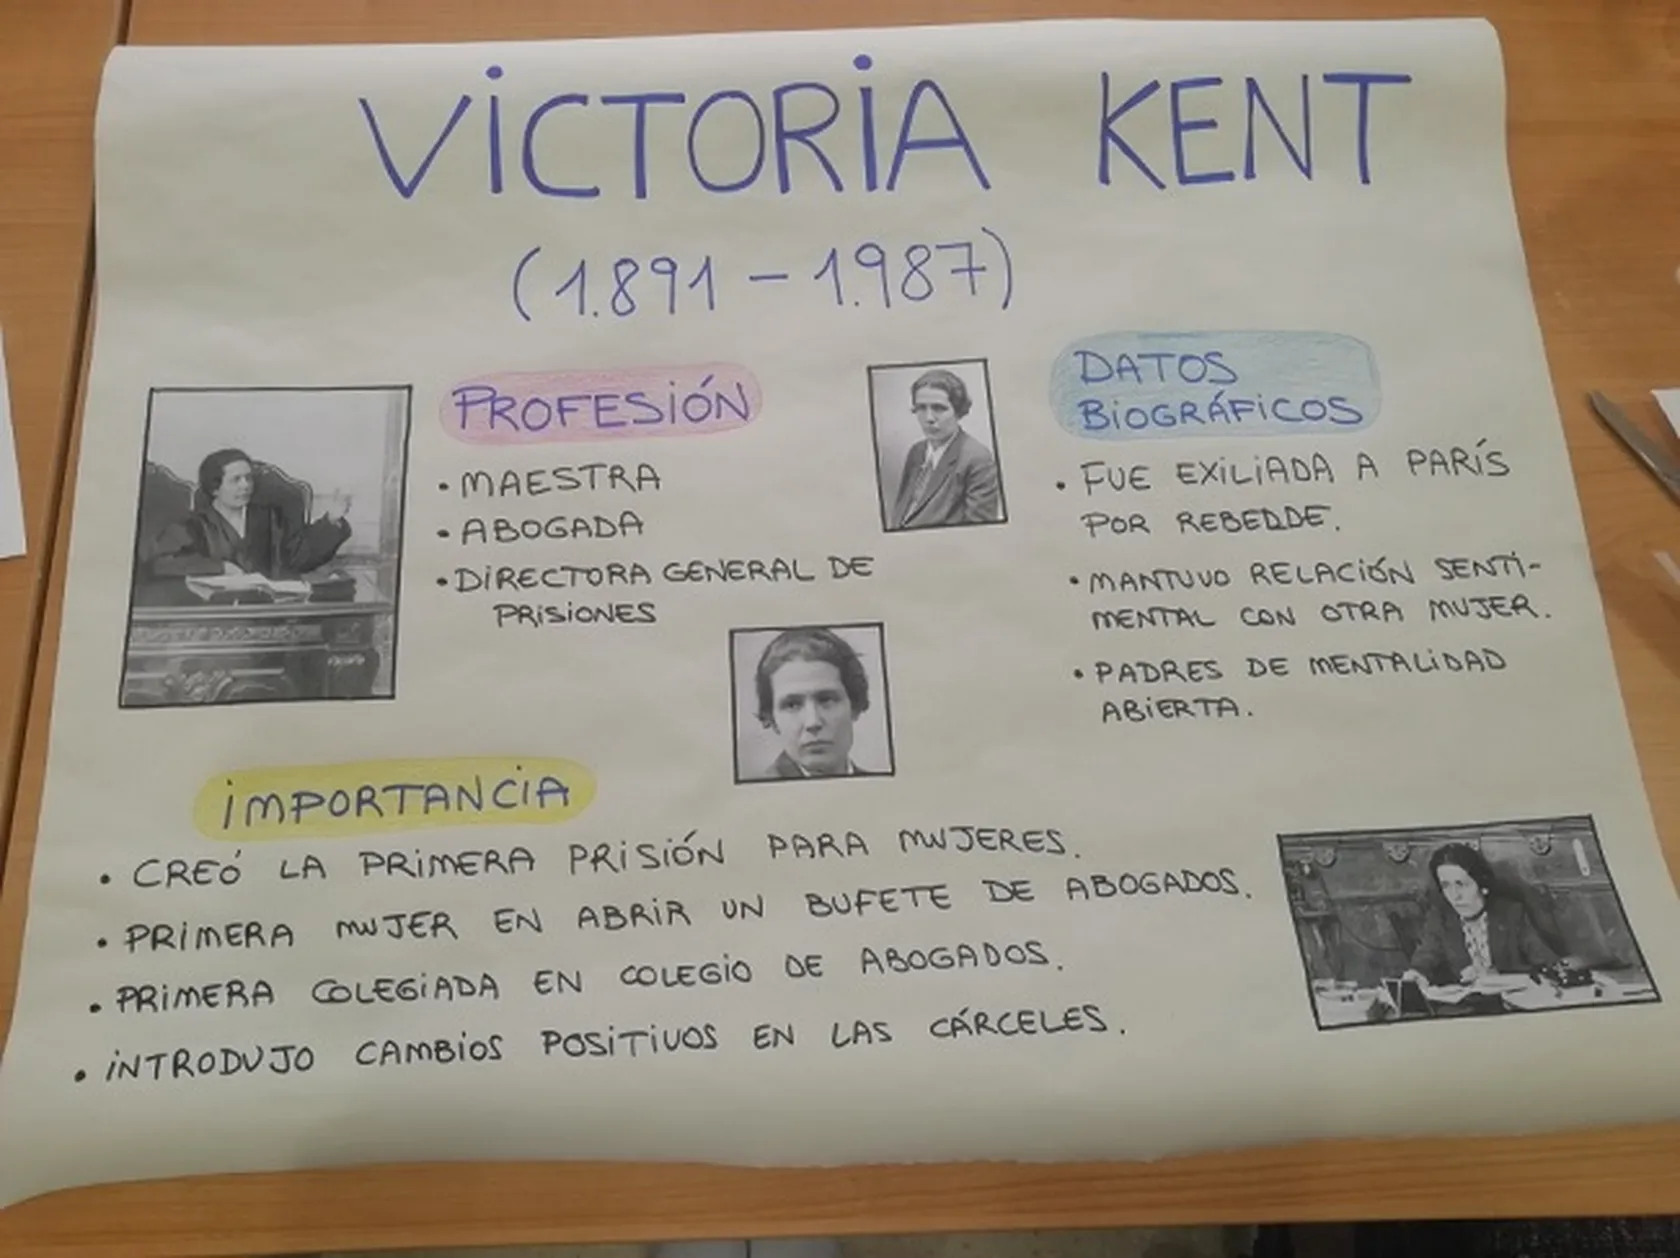 VICTORIA KENT
(1.891 - 1.987)
PROFESIÓN
• MAESTRA
• ABOGADA
• DIRECTORA GENERAL DE
PRISIONES
DATOS
BIOGRÁFICOS
• FUE EXILIADA A PARÍS
POR REBEDDE.
• MANTUVO RELACIÓN SENTI-
MENTAL CON OTRA MUJER.
• PADRES DE MENTALIDAD
ABIERTA.
IMPORTANCIA
• CREÓ LA PRIMERA PRISIÓN PARA MUJERES.
• PRIMERA MUJER EN ABRIR UN BUFETE DE ABOGADOS.
• PRIMERA COLEGIADA EN COLEGIO DE ABOGADOS.
• INTRODUJO CAMBIOS POSITIVOS EN LAS CÁRCELES.